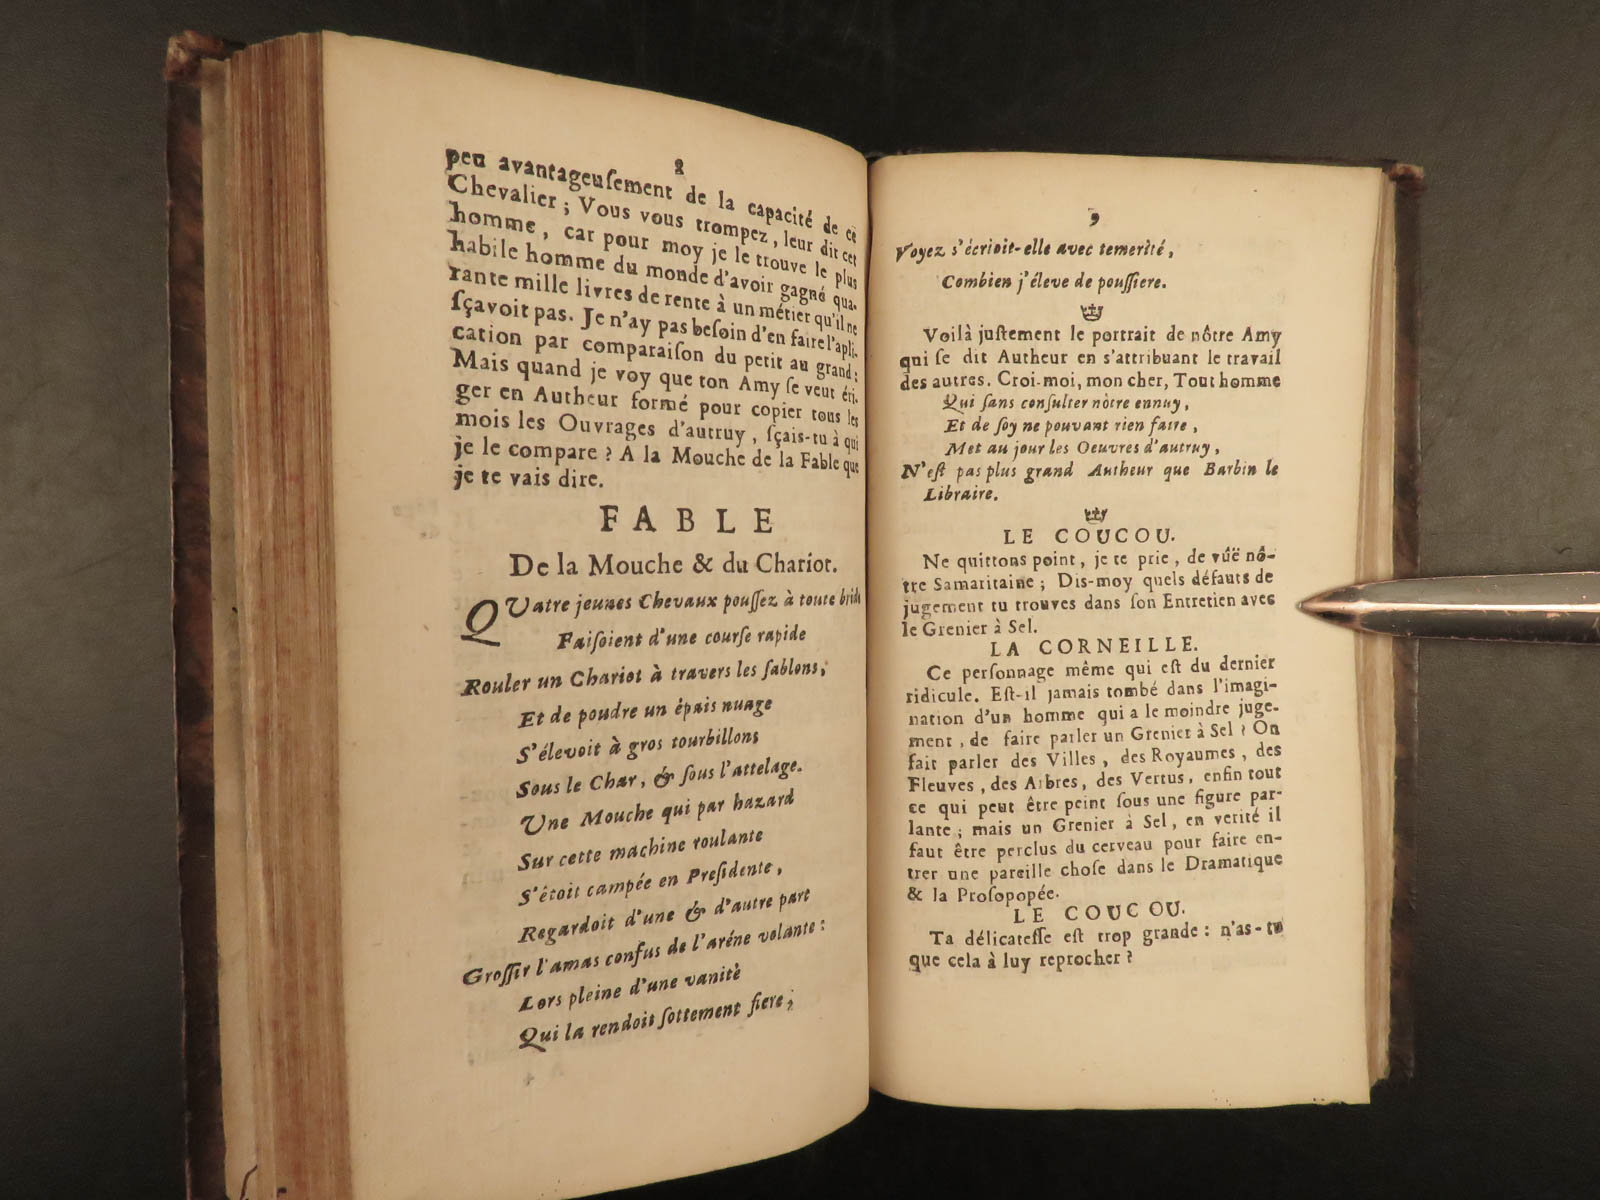 8
peu avantageuſement de la capacité de ce
Chevalier ; Vous vous trompez, leur dit cet
homme, car pour moy je le trouve le plus
habile homme du monde d'avoir gagné qua-
rante mille livres de rente à un métier qu'il ne
ſçavoit pas. Je n'ay pas beſoin d'en faire l'apli-
cation par comparaiſon du petit au grand;
Mais quand je voy que ton Amy ſe veut éri-
ger en Autheur formé pour copier tous les
mois les Ouvrages d'autruy, ſçais-tu à qui
je le compare ? A la Mouche de la Fable que
je te vais dire.
FABLE
De la Mouche & du Chariot.
QUatre jeunes Chevaux pouſſez à toute bride
Faiſoient d'une courſe rapide
Rouler un Chariot à travers les ſablons,
Et de poudre un épais nuage
S'élevoit à gros tourbillons
Sous le Char, & ſous l'attelage.
Une Mouche qui par hazard
Sur cette machine roulante
S'étoit campée en Preſidente,
Regardoit d'une & d'autre part
Groſſir l'amas confus de l'aréne volante :
Lors pleine d'une vanité
Qui la rendoit ſottement fiere,
9
Voyez s'écrioit-elle avec temerité,
Combien j'éleve de pouſſiere.
Voilà juſtement le portrait de nôtre Amy
qui ſe dit Autheur en s'attribuant le travail
des autres. Croi-moi, mon cher, Tout homme
Qui ſans conſulter nôtre ennuy,
Et de ſoy ne pouvant rien faire,
Met au jour les Oeuvres d'autruy,
N'eſt pas plus grand Autheur que Barbin le
Libraire.
LE COUCOU.
Ne quittons point, je te prie, de vûë nô-
tre Samaritaine ; Dis-moy quels défauts de
jugement tu trouves dans ſon Entretien avec
le Grenier à Sel.
LA CORNEILLE.
Ce perſonnage même qui eſt du dernier
ridicule. Eſt-il jamais tombé dans l'imagi-
nation d'un homme qui a le moindre juge-
ment, de faire parler un Grenier à Sel ? On
fait parler des Villes, des Royaumes, des
Fleuves, des Arbres, des Vertus, enfin tout
ce qui peut être peint ſous une figure par-
lante ; mais un Grenier à Sel, en verité il
faut être perclus du cerveau pour faire en-
trer une pareille choſe dans le Dramatique
& la Proſopopée.
LE COUCOU.
Ta délicateſſe eſt trop grande : n'as-tu
que cela à luy reprocher ?